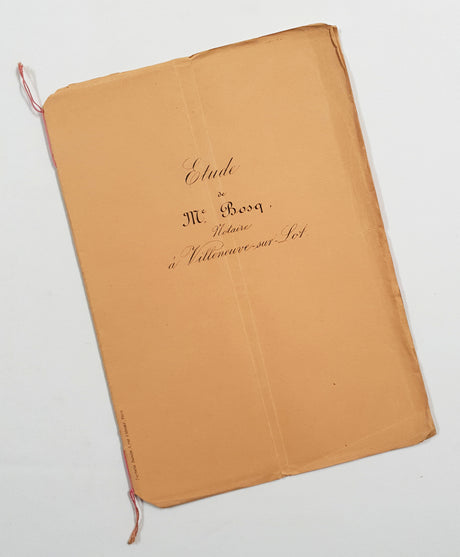 Etude
de
Me Bosq.
Notaire
à Villeneuve-sur-Lot.